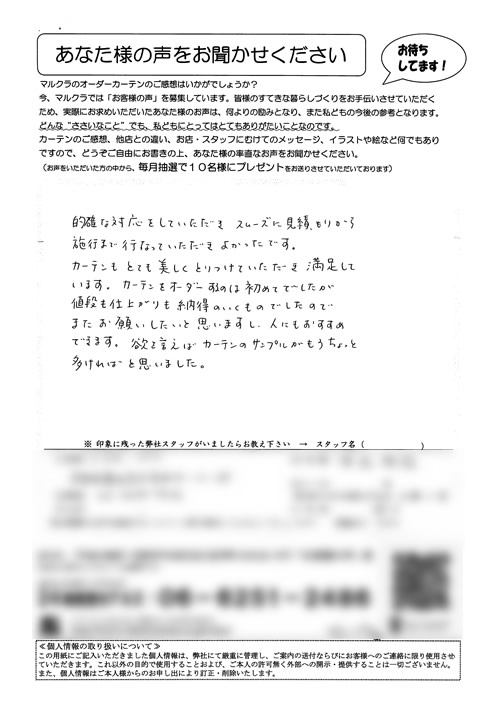 あなた様の声をお聞かせください
お待ち
してます！
マルクラのオーダーカーテンのご感想はいかがでしょうか？
今、マルクラでは「お客様の声」を募集しています。皆様のすてきな暮らしづくりをお手伝いさせていただく
ため、実際にお求めいただいたあなた様のお声は、何よりの励みとなり、また私どもの今後の参考となります。
どんな“ささいなこと”でも、私どもにとってはとてもありがたいことなのです。
カーテンのご感想、他店との違い、お店・スタッフにむけてのメッセージ、イラストや絵など何でもあり
ですので、どうぞご自由にお書きの上、あなた様の率直なお声をお聞かせください。
（お声をいただいた方の中から、毎月抽選で１０名様にプレゼントをお送りさせていただいております）
的確な対応をしていただき スムーズに見積もりから
施行まで行なっていただき よかったです。
カーテンも とても美しくとりつけていただき 満足して
います。 カーテンをオーダーするのは初めてでしたが
値段も仕上がりも納得のいくものでしたので
またお願いしたいと思いますし、人にもおすすめ
できます。 欲を言えば カーテンのサンプルがもうちょっと
多ければと思いました。
※ 印象に残った弊社スタッフがいましたらお教え下さい → スタッフ名（ ）
06-6251-2486
≪個人情報の取り扱いについて≫
この用紙にご記入いただきました個人情報は、弊社にて厳重に管理し、ご案内の送付ならびにお客様へのご連絡に限り使用させ
ていただきます。これ以外の目的で使用することおよび、ご本人の許可無く外部への開示・提供することは一切ございません。
また、個人情報はご本人様からのお申し出により訂正・削除いたします。